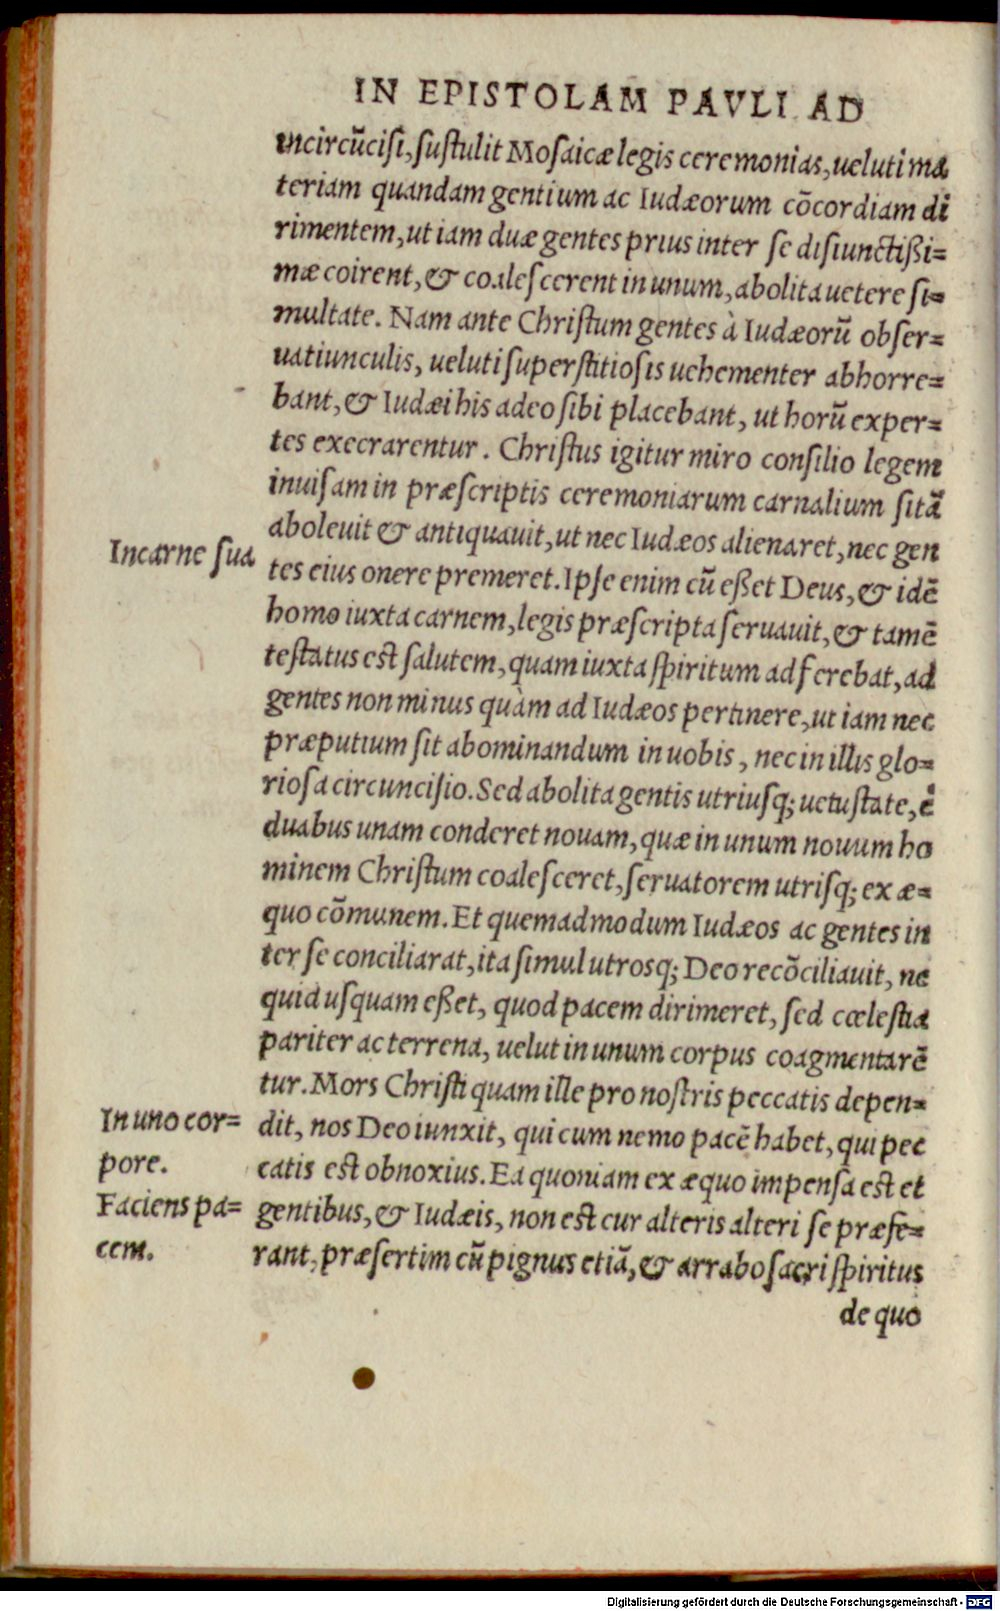 IN EPISTOLAM PAVLI AD
incircūcisi, sustulit Mosaicæ legis ceremonias, ueluti ma
teriam quandam gentium ac Iudæorum cōcordiam di
rimentem, ut iam duæ gentes prius inter se disiunctißi=
mæ coirent, & coalescerent in unum, abolita uetere si=
multate. Nam ante Christum gentes à Iudæorū obser=
uatiunculis, ueluti superstitiosis uehementer abhorre=
bant, & Iudæi his adeo sibi placebant, ut horū exper=
tes execrarentur. Christus igitur miro consilio legem
inuisam in præscriptis ceremoniarum carnalium sitā
aboleuit & antiquauit, ut nec Iudæos alienaret, nec gen
Incarne sua
tes eius onere premeret. Ipse enim cū eßet Deus, & idē
homo iuxta carnem, legis præscripta seruauit, & tamē
testatus est salutem, quam iuxta spiritum adferebat, ad
gentes non minus quàm ad Iudæos pertinere, ut iam nec
præputium sit abominandum in uobis, nec in illis glo=
riosa circuncisio. Sed abolita gentis utriusq; uetustate, ē
duabus unam conderet nouam, quæ in unum nouum ho
minem Christum coalesceret, seruatorem utrisq; ex æ=
quo cōmunem. Et quemadmodum Iudæos ac gentes in
ter se conciliarat, ita simul utrosq; Deo recōciliauit, ne
quid usquam eßet, quod pacem dirimeret, sed cœlestia
pariter ac terrena, uelut in unum corpus coagmentarē
tur. Mors Christi quam ille pro nostris peccatis depen=
In uno cor=
dit, nos Deo iunxit, qui cum nemo pacē habet, qui pec
pore.
catis est obnoxius. Ea quoniam ex æquo impensa est et
Faciens pa=
gentibus, & Iudæis, non est cur alteris alteri se præfe=
cem.
rant, præsertim cū pignus etiā, & arrabo sacri spiritus
de quo
Digitalisierung gefördert durch die Deutsche Forschungsgemeinschaft - DFG